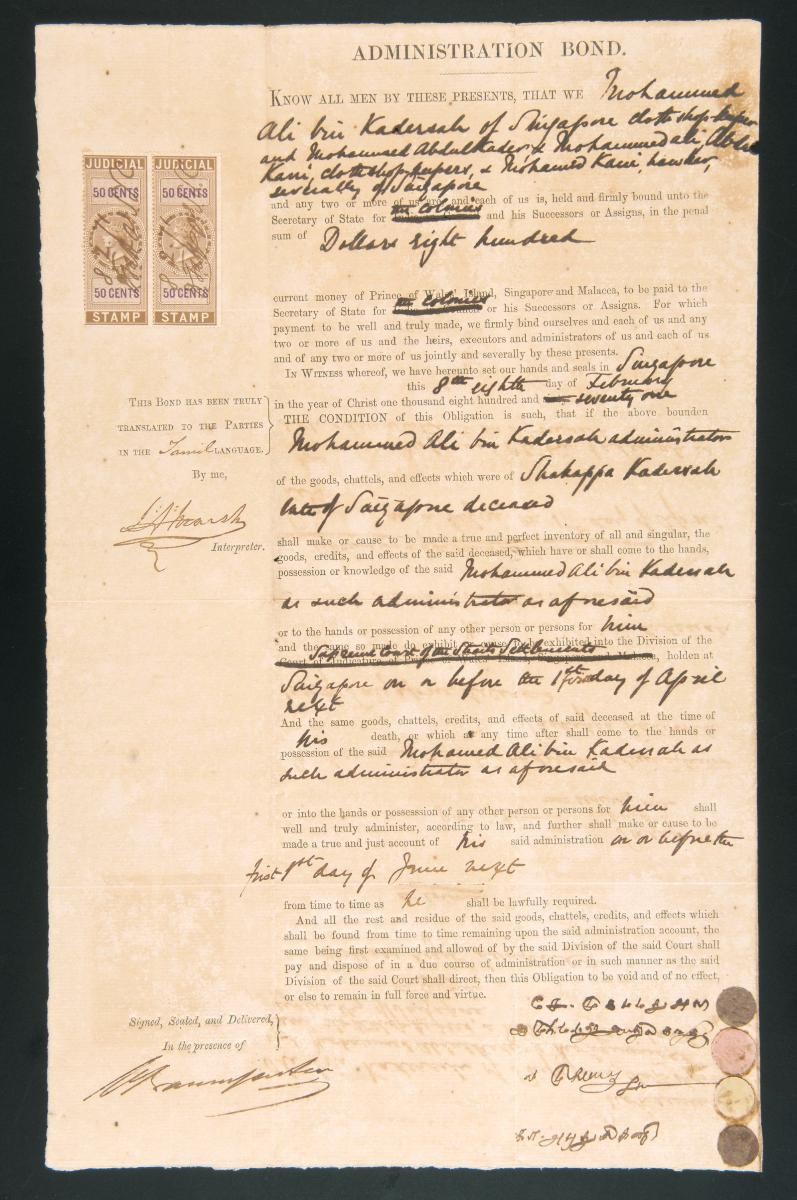 ADMINISTRATION BOND.
KNOW ALL MEN BY THESE PRESENTS, THAT WE Mohammed
Ali bin Kadersah of Singapore cloth shop keeper
and Mohammed Abdul Kader & Mohammed ali Abdul
Kani, cloth shop keepers, & Mohamed Kani, hawker,
severally of Singapore
and any two or more of us are and each of us is, held and firmly bound unto the
Secretary of State for the colonies and his Successors or Assigns, in the penal
sum of Dollars eight hundred
current money of Prince of Wales' Island, Singapore and Malacca, to be paid to the
Secretary of State for the colonies or his Successors or Assigns. For which
payment to be well and truly made, we firmly bind ourselves and each of us and any
two or more of us and the heirs, executors and administrators of us and each of us
and of any two or more of us jointly and severally by these presents.
IN WITNESS whereof, we have hereunto set our hands and seals in Singapore
this 8th eighth day of February
in the year of Christ one thousand eight hundred and seventy one
THE CONDITION of this Obligation is such, that if the above bounden
Mohammed Ali bin Kadersah administrator
of the goods, chattels, and effects which were of Shakappa Kadersah
late of Singapore deceased
shall make or cause to be made a true and perfect inventory of all and singular, the
goods, credits, and effects of the said deceased, which have or shall come to the hands,
possession or knowledge of the said Mohammed Ali bin Kadersah
as such administrator as aforesaid
or to the hands or possession of any other person or persons for him
and the same so made do exhibit or cause to be exhibited into the Division of the
Supreme Court of the Straits Settlements holden at
Singapore on or before the 1st first day of April
next
And the same goods, chattels, credits, and effects of said deceased at the time of
his death, or which at any time after shall come to the hands or
possession of the said Mohamed Ali bin Kadersah as
such administrator as aforesaid
or into the hands or possesssion of any other person or persons for him shall
well and truly administer, according to law, and further shall make or cause to be
made a true and just account of his said administration on or before the
first 1st day of June next
from time to time as he shall be lawfully required.
And all the rest and residue of the said goods, chattels, credits, and effects which
shall be found from time to time remaining upon the said administration account, the
same being first examined and allowed of by the said Division of the said Court shall
pay and dispose of in a due course of administration or in such manner as the said
Division of the said Court shall direct, then this Obligation to be void and of no effect,
or else to remain in full force and virtue.
JUDICIAL JUDICIAL
50 CENTS 50 CENTS
50 CENTS 50 CENTS
STAMP STAMP
THIS BOND HAS BEEN TRULY
TRANSLATED TO THE PARTIES
IN THE Tamil LANGUAGE.
By me,
Interpreter.
Signed, Sealed, and Delivered,
In the presence of